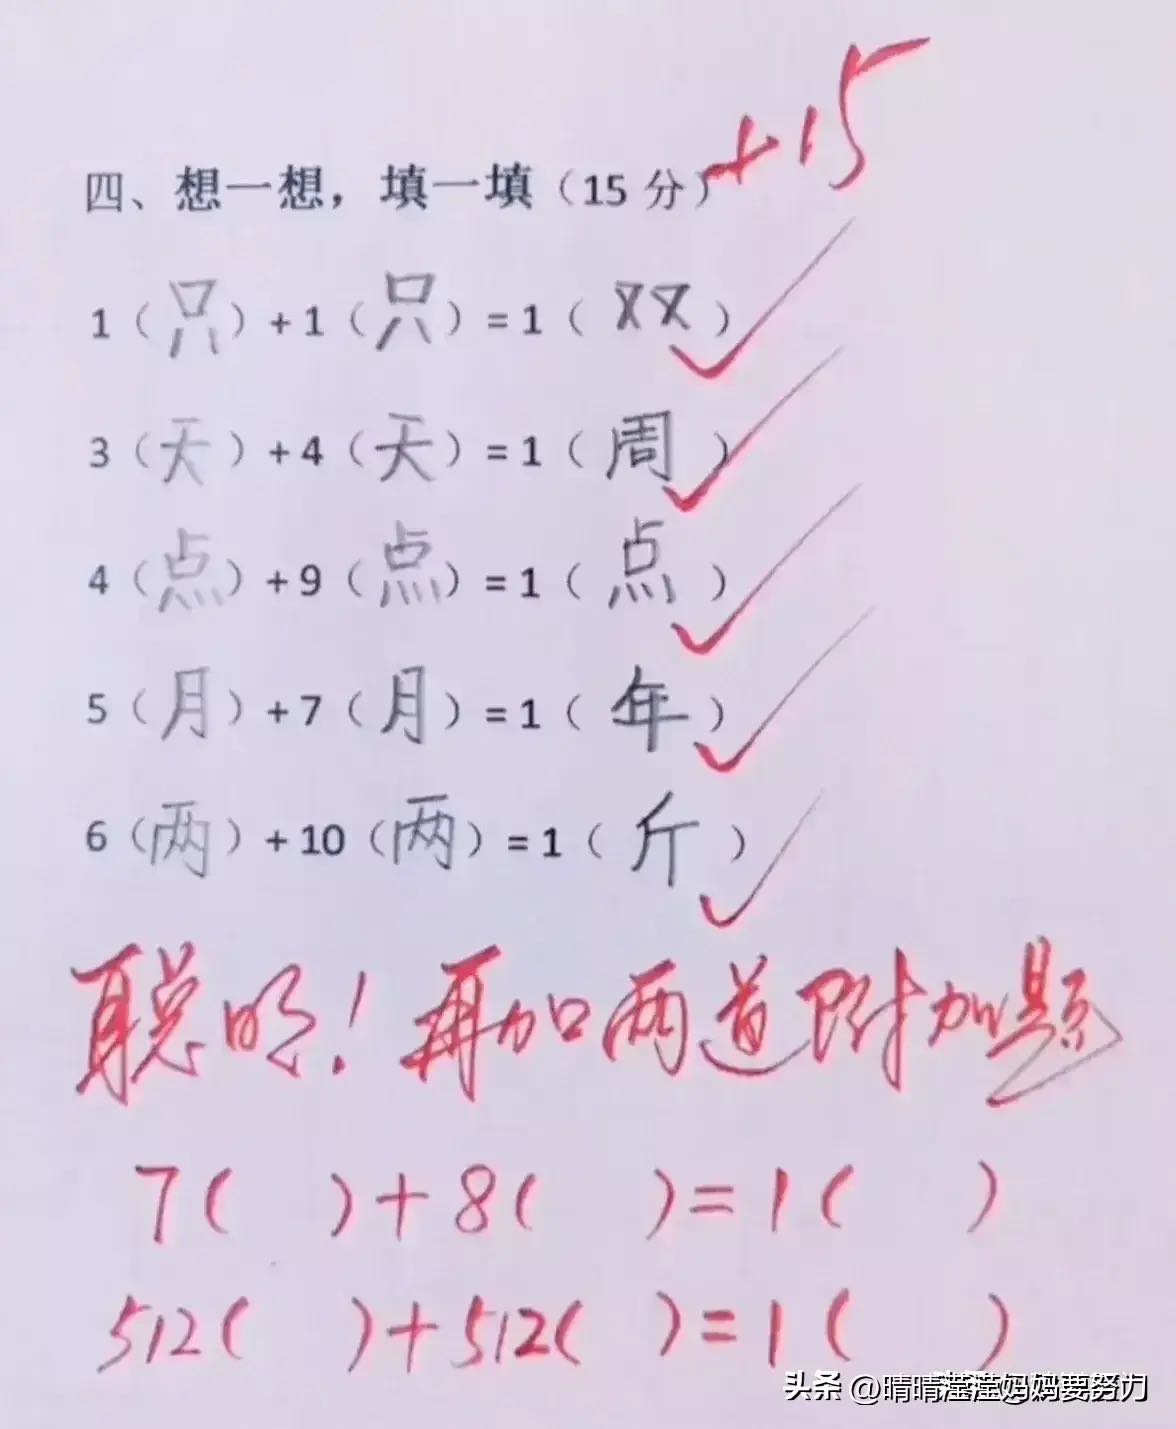 四、想一想，填一填（15 分） +15
1（只）+1（只）=1（双）
3（天）+4（天）=1（周）
4（点）+9（点）=1（点）
5（月）+7（月）=1（年）
6（两）+10（两）=1（斤）
聪明！再加两道附加题
7( )+8( )=1( )
512( )+512( )=1( )
头条 @晴晴滢滢妈妈要努力